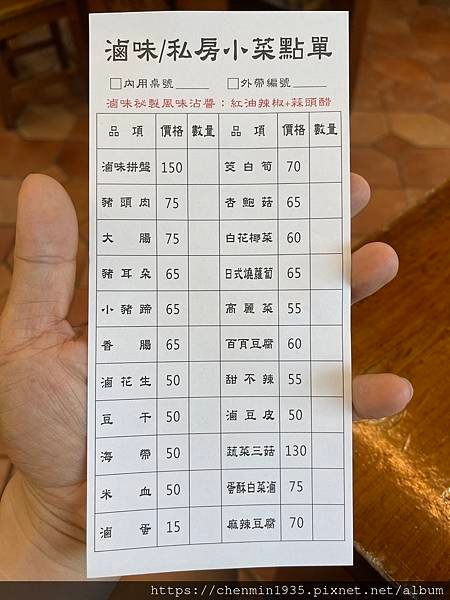 滷味/私房小菜點單
□內用桌號______ □外帶編號______
滷味秘製風味沾醬：紅油辣椒+蒜頭醋
品項 價格 數量 品項 價格 數量
滷味拼盤 150 茭白筍 70
豬頭肉 75 杏鮑菇 65
大腸 75 白花椰菜 60
豬耳朵 65 日式燒蘿蔔 65
小豬蹄 65 高麗菜 55
香腸 65 百頁豆腐 60
滷花生 50 甜不辣 55
豆干 50 滷豆皮 50
海帶 50 蔬菜三菇 130
米血 50 蛋酥白菜滷 75
滷蛋 15 麻辣豆腐 70
https://chenmin1935.pixnet.net/album